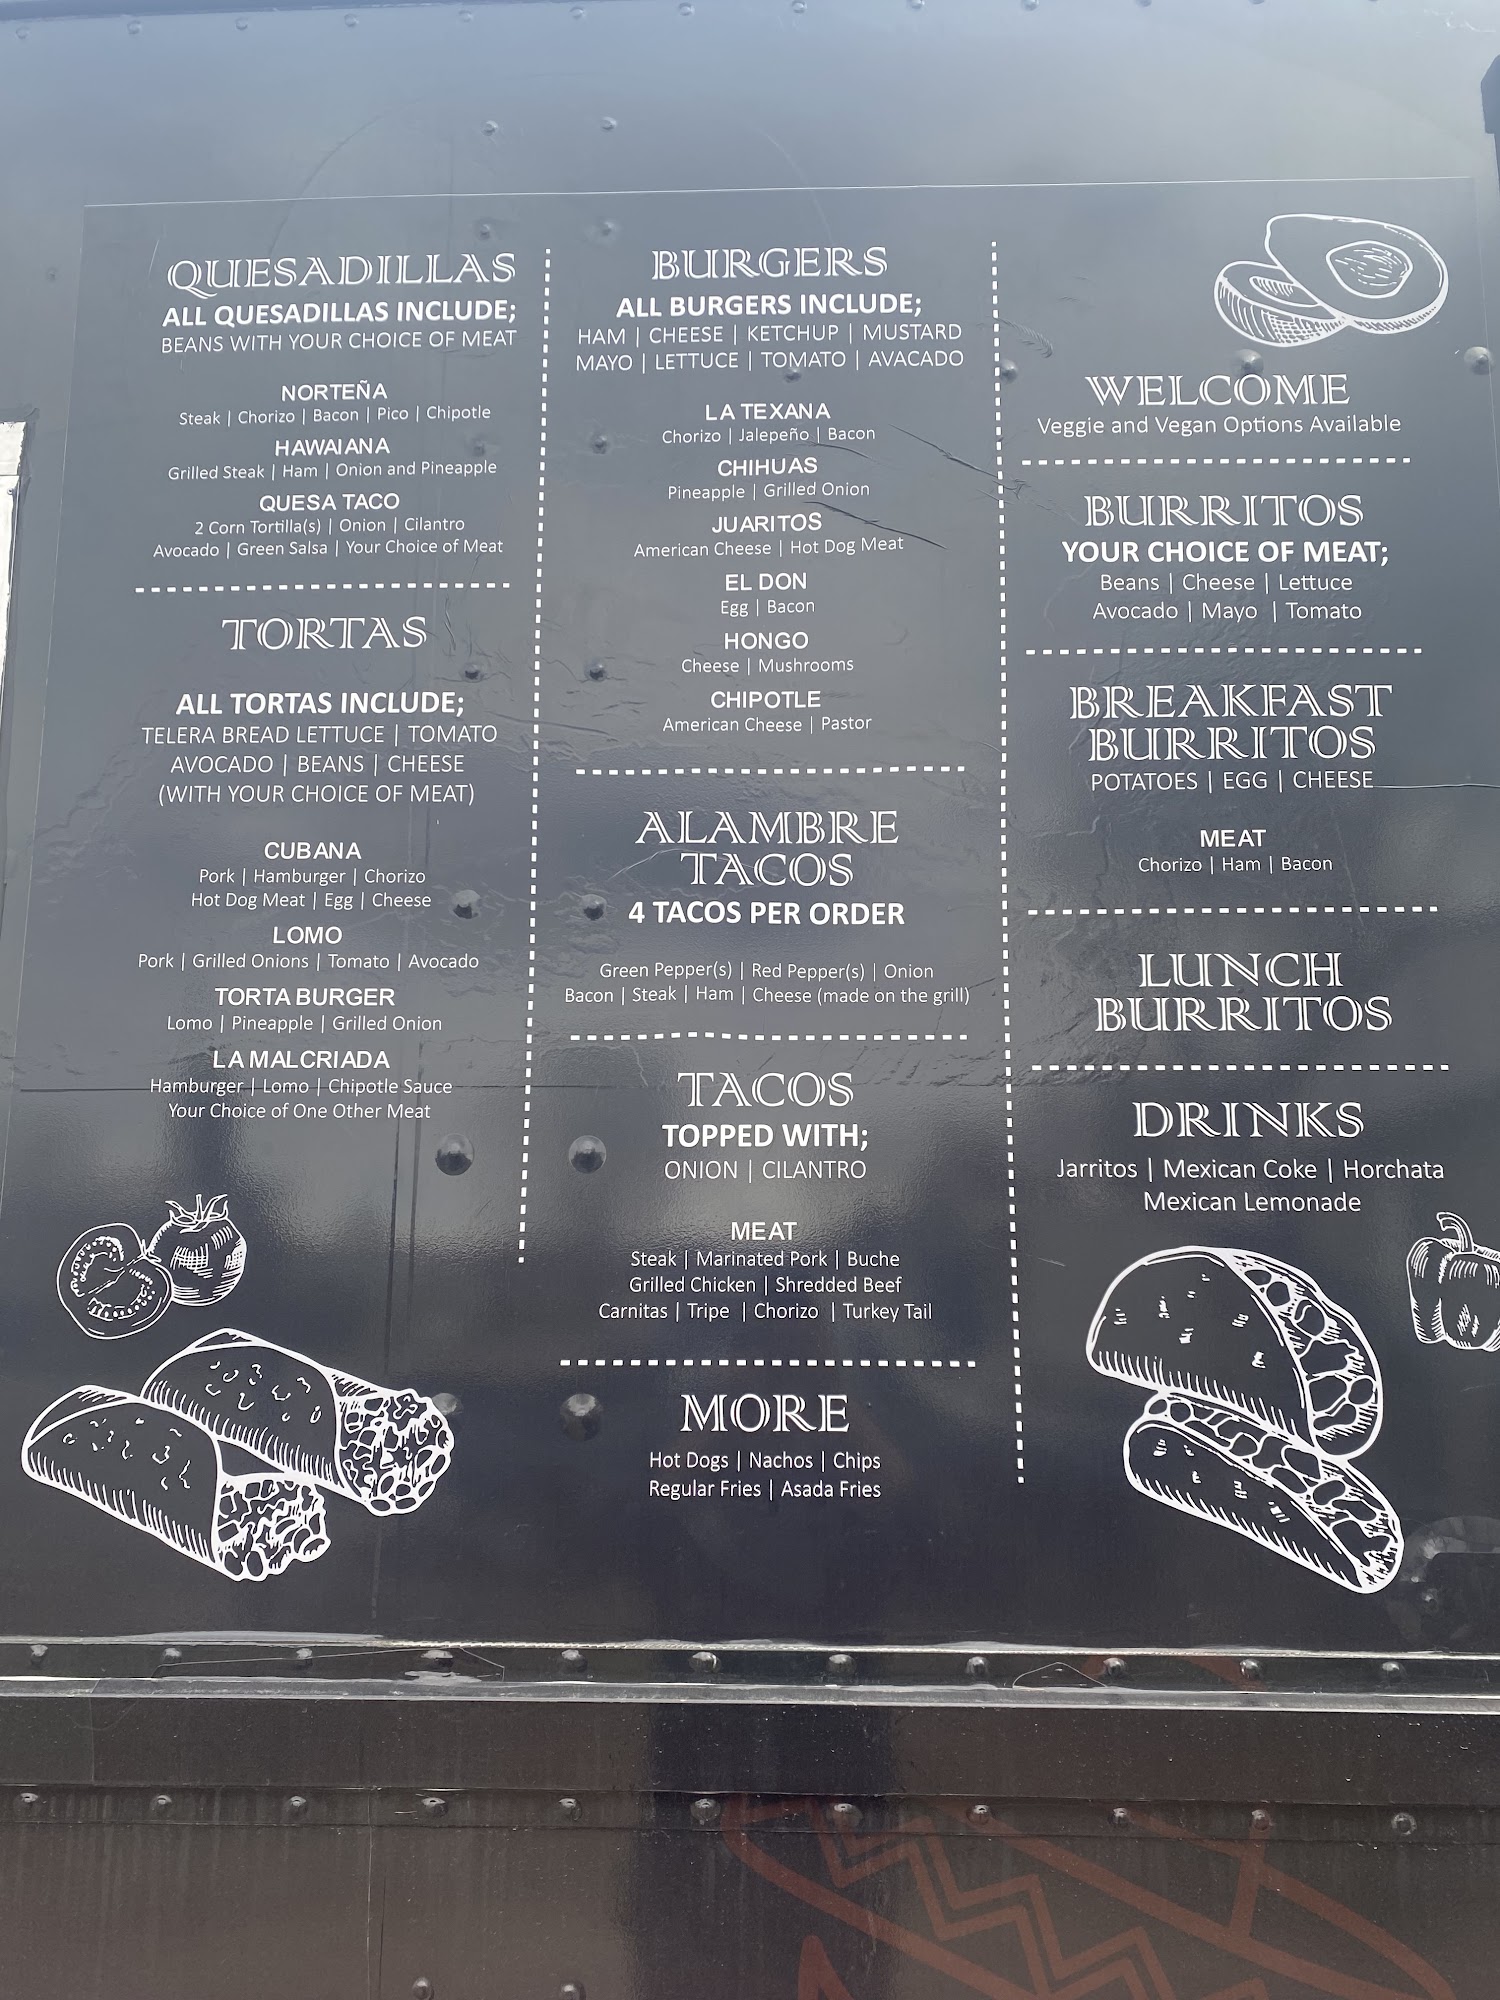 QUESADILLAS
ALL QUESADILLAS INCLUDE;
BEANS WITH YOUR CHOICE OF MEAT
NORTEÑA
Steak | Chorizo | Bacon | Pico | Chipotle
HAWAIANA
Grilled Steak | Ham | Onion and Pineapple
QUESA TACO
2 Corn Tortilla(s) | Onion | Cilantro
Avocado | Green Salsa | Your Choice of Meat
TORTAS
ALL TORTAS INCLUDE;
TELERA BREAD LETTUCE | TOMATO
AVOCADO | BEANS | CHEESE
(WITH YOUR CHOICE OF MEAT)
CUBANA
Pork | Hamburger | Chorizo
Hot Dog Meat | Egg | Cheese
LOMO
Pork | Grilled Onions | Tomato | Avocado
TORTA BURGER
Lomo | Pineapple | Grilled Onion
LA MALCRIADA
Hamburger | Lomo | Chipotle Sauce
Your Choice of One Other Meat
BURGERS
ALL BURGERS INCLUDE;
HAM | CHEESE | KETCHUP | MUSTARD
MAYO | LETTUCE | TOMATO | AVACADO
LA TEXANA
Chorizo | Jalepeño | Bacon
CHIHUAS
Pineapple | Grilled Onion
JUARITOS
American Cheese | Hot Dog Meat
EL DON
Egg | Bacon
HONGO
Cheese | Mushrooms
CHIPOTLE
American Cheese | Pastor
ALAMBRE
TACOS
4 TACOS PER ORDER
Green Pepper(s) | Red Pepper(s) | Onion
Bacon | Steak | Ham | Cheese (made on the grill)
TACOS
TOPPED WITH;
ONION | CILANTRO
MEAT
Steak | Marinated Pork | Buche
Grilled Chicken | Shredded Beef
Carnitas | Tripe | Chorizo | Turkey Tail
MORE
Hot Dogs | Nachos | Chips
Regular Fries | Asada Fries
WELCOME
Veggie and Vegan Options Available
BURRITOS
YOUR CHOICE OF MEAT;
Beans | Cheese | Lettuce
Avocado | Mayo | Tomato
BREAKFAST
BURRITOS
POTATOES | EGG | CHEESE
MEAT
Chorizo | Ham | Bacon
LUNCH
BURRITOS
DRINKS
Jarritos | Mexican Coke | Horchata
Mexican Lemonade